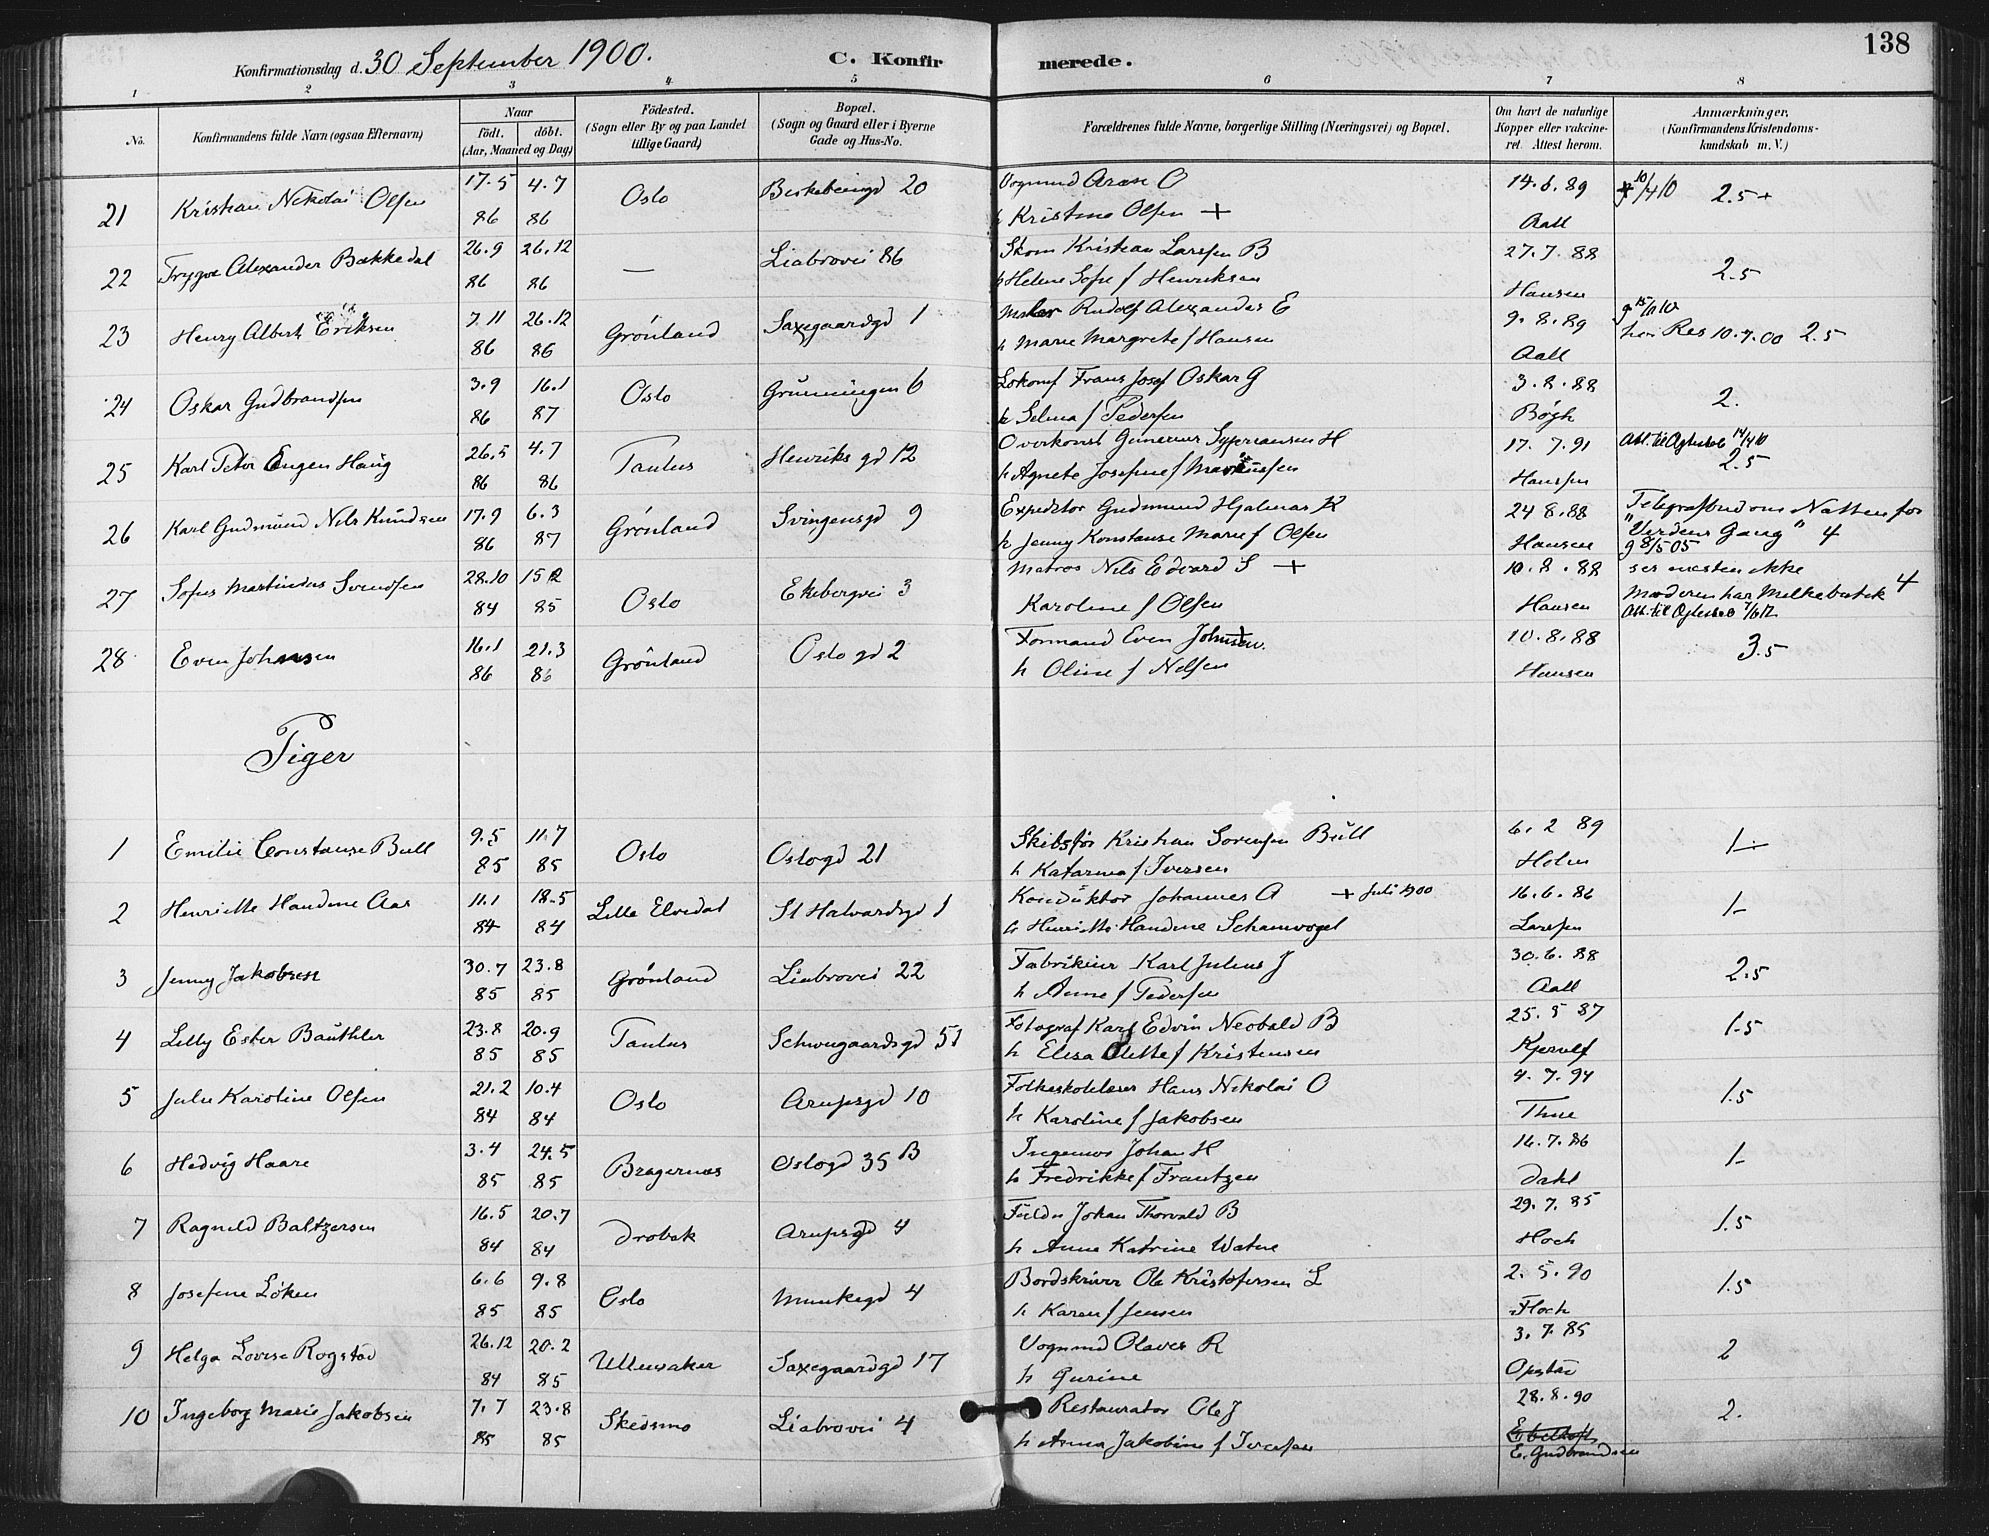 138
Konfirmationsdag d. 30 September 1900.
C. Konfirmerede.
1 2 3 4 5 6 7 8
No.
Konfirmandens fulde Navn (ogsaa Efternavn)
Naar
født. døbt.
(Aar, Maaned og Dag)
Födested.
(Sogn eller By og paa Landet
tillige Gaard)
Bopæl.
(Sogn og Gaard eller i Byerne
Gade og Hus-No.
Forældrenes fulde Navne, borgerlige Stilling (Næringsvei) og Bopæl.
Om havt de naturlige
Kopper eller vakcine-
ret. Attest herom.
Anmærkninger.
(Konfirmandens Kristendoms-
kundskab m. V.)
21 Kristian Nikolai Olsen 17.5 86 4.7 86 Oslo 20 Vognmd O
h Kristine Olsen + 14.6.89 Aall 2.5+
22 Trygve Alexander Bækkedal 26.9 86 26.12 86 — Liabrovei 86 Skom Kristian Larssen B
h Helene Sofie f Henriksen 27.7.88 Hansen 2.5
23 Henry Albert Eriksen 7.11 86 26.12 86 Grönland Saxegaardsgd 1 Maler Rudolf Alexander E
h Marie Margrete f Hansen 9.8.89 Aall Res 10.7.00 2.5
24 Oskar Gudbrandsen 3.9 86 16.1 87 Oslo Grünningen 6 Lokomf Frans Josef Oskar G
h Selma f Pedersen 3.8.88 Bögh 2.
25 Karl Peter Eugen Haug 26.5 86 4.7 86 Paulus Henriks gd 12 Overkonst Gunerius Syversansen H
h Agnete Josefine f Markussen 17.7.91 Hanssen 2.5
26 Karl Gudmund Nils Knudsen 17.9 86 6.3 87 Grönland Svingensgd 9 Expeditor Gudmund Hjalmar K
h Jenny Konstanse Marie f Olsen 24.8.88 Hansen Telegrafbud om Natten for
"Verdens Gang" 4
g 8/5 05
27 Sofus Martinius Svendsen 28.10 84 15.2 85 Oslo Ekebergvei 3 Matros Nils Edvard S +
Karoline f Olsen 10.8.88 Hansen ser næsten ikke
Moderen har Melkebutik 4
28 Even Johansen 16.1 86 21.3 86 Grönland Oslo gd 2 Formand Even Johansen.
h Oline f Nilsen 10.8.88 Hansen 3.5
Piger
1 Emilie Constanse Bull 9.5 85 11.7 85 Oslo Oslogd 21 Skibsför Kristian Sorensen Bull
h Katarina f Iversen 6.2 89 Holm 1-
2 Henriette Handine Aas 11.1 84 18.5 84 Lille Elvedal St Halvardsgd 1 Konduktör Johannes A + Juli 1900
h Henriette Handine Schanvogel 16.6.86 Larssen 1-
3 Jenny Jakobsen 30.7 85 23.8 85 Grönland Liabrovei 22 Fabrikeier Karl Julius J
h Anne f Pedersen 30.6.88 Aall 2.5
4 Lilly Ester Bauthler 23.8 85 20.9 85 Paulus Schweigaardsgd 51 Fotograf Karl Edvin Neobald B
h Elisa Olette f Kristensen 25.5 87 Kjerulf 1.5
5 Julie Karoline Olsen 21.2 84 10.4 84 Oslo Arupsgd 10 Folkeskolelærer Hans Nikolai O
h Karoline f Jakobsen 4.7.94 Thue 1.5
6 Hedvig Haare 3.4 85 24.5 85 Bragernæs Oslogd 35 B Ingeniør Johan H
h Fredrikke f Frantzen 16.7.86 Dahl 1-
7 Ragnild Baltzersen 16.5 84 20.7 84 Drøbak Arupsgd 4 Johan Thorvald B
h Anne Katrine Watne 29.7.85 Hoch 1.5
8 Josefine Löken 6.6 85 9.8 85 Oslo Munkegd 4 Bordskriver Ole Kristofersen L
h Karen f Jensen 2.5.90 Floch 1.5
9 Helga Lovise Rogstad 26.12 84 20.2 85 Ullensaker Saxegaardsgd 17 Vognmd Olaves R
h Gurine 3.7.85 Opstad 2
10 Ingeborg Marie Jakobsen 7.7 85 23.8 85 Skedsmo Liabrovei 4 Restauratör Ole J
h Anna Jakobine f Iversen 28.8.90 E. Gudbrandsen 2.